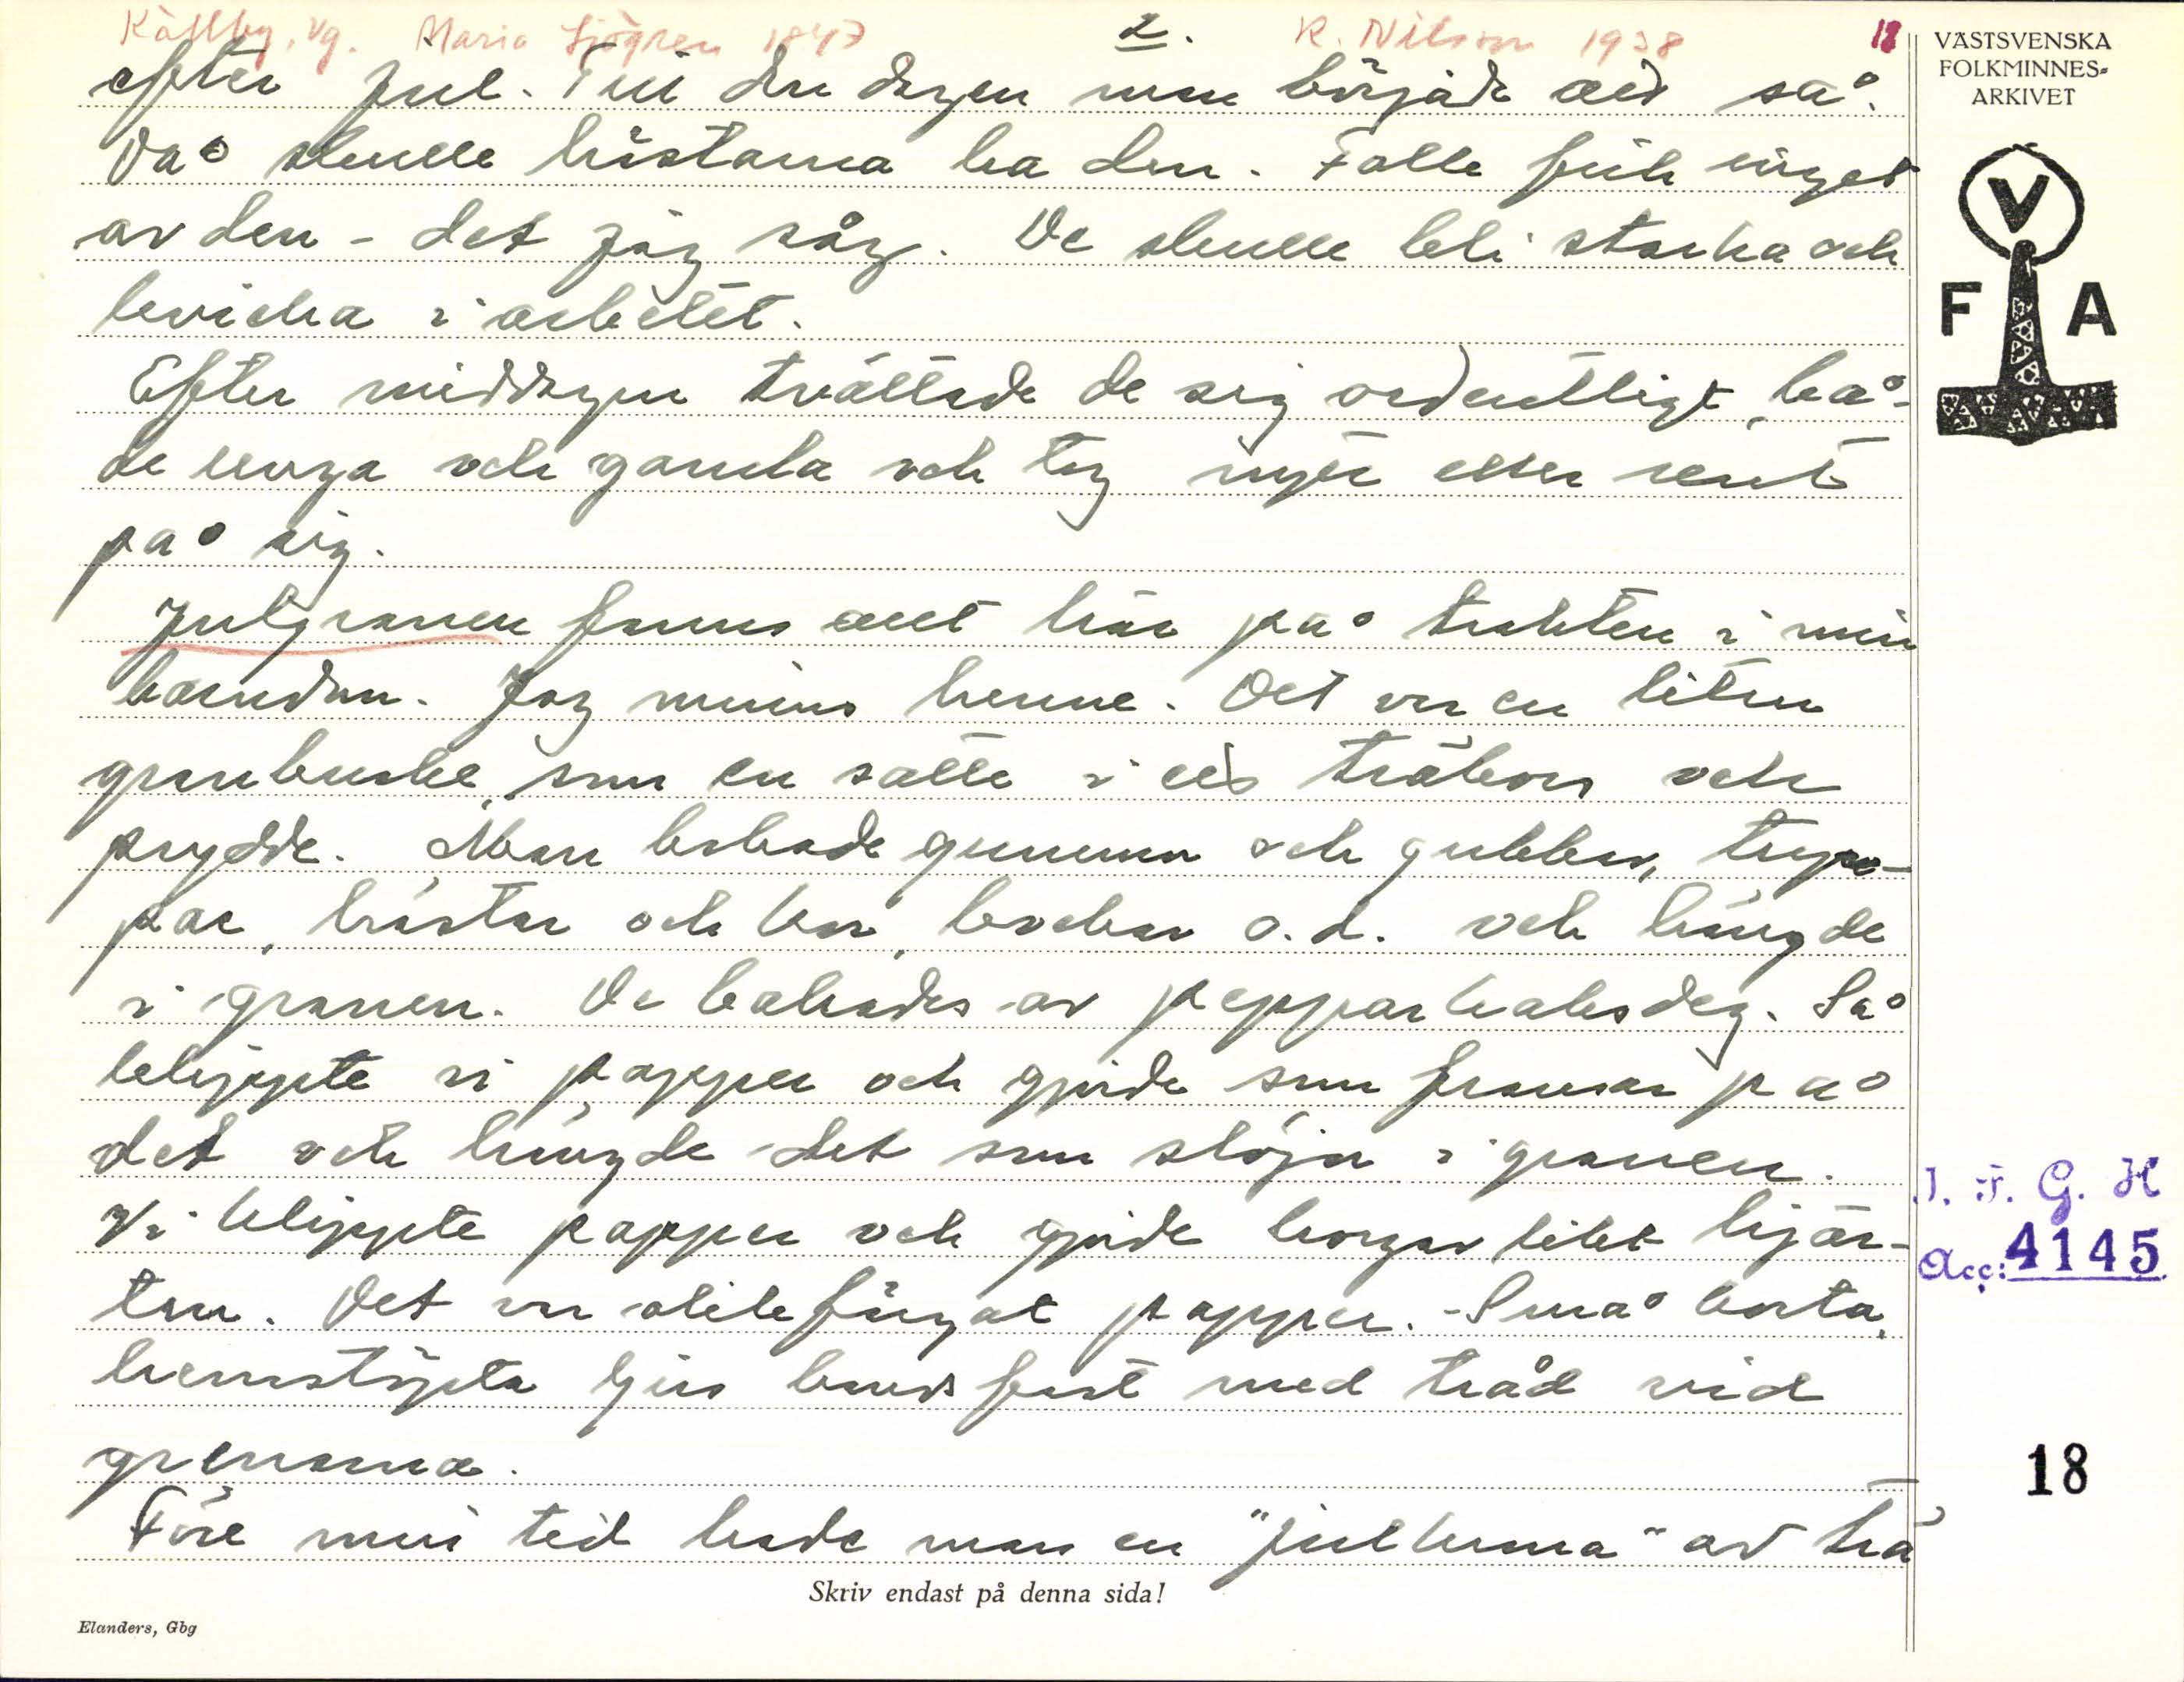 Källby, Vg. Maria Sjögren 1847 2. R. Nilson 1938 18
efter jul. Till den dagen man började att så.
Då skulle hästarna ha den. Folk fick inget
av den - det jag såg. De skulle bli starka och
kvicka i arbetet.
Efter middagen tvättade de sig ordentligt, bå-
de unga och gamla och tog nytt eller rent
på sig.
Julgranen fanns allt här på trakten i min
barndom. Jag minns henne. Det var en liten
granbuske, som en satte i ett träkors och
prydde. Man bakade gummor och gubbar, tup-
par, hästar och kor, bockar o.d. och hängde
i granen. De bakades av pepparkaksdeg. Så
klippte vi papper och gjorde som fransar på
det och hängde det som slöjor i granen.
Vi klippte papper och gjorde korgar likt hjär-
tan. Det var olikfärgat papper. - Små korta,
hemstöpta ljus bands fast med tråd vid
grenarna.
Före min tid hade man en "julkuna" av trä
Skriv endast på denna sida!
Elanders, Gbg
VÄSTSVENSKA
FOLKMINNES-
ARKIVET
V
F A
I. F. G. H
Acc: 4145
18